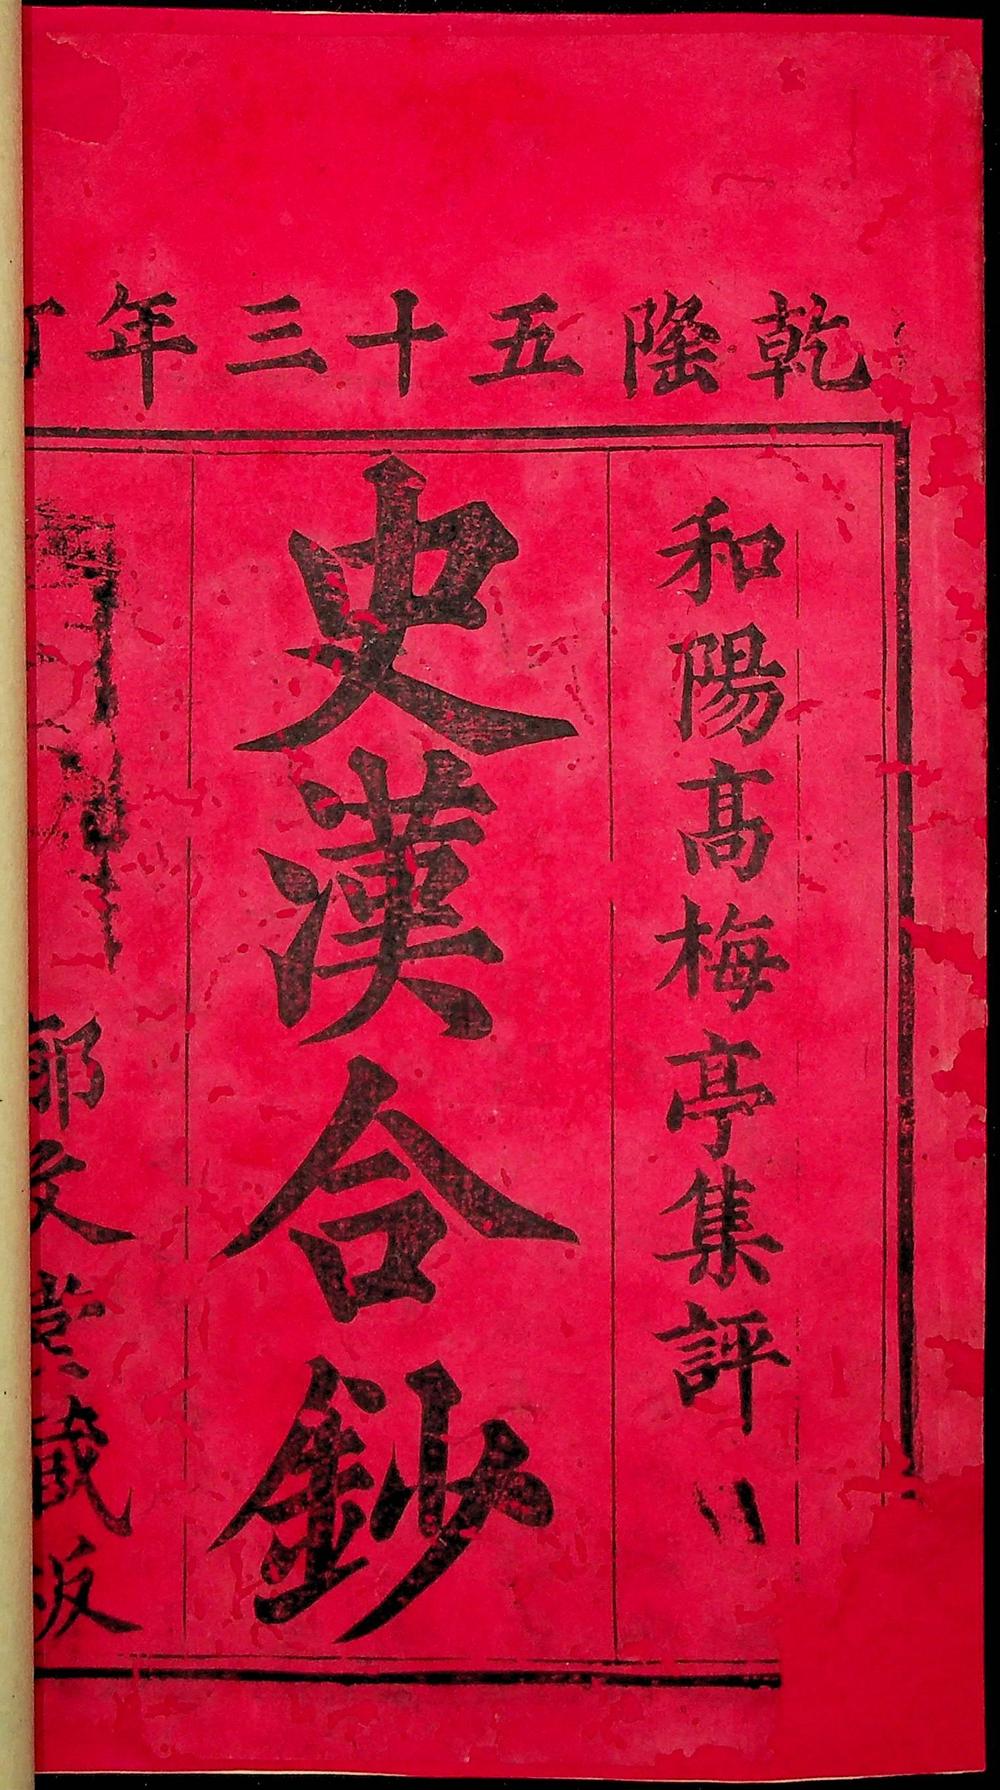 乾隆五十三年
和陽高梅亭集評
史漢合鈔
郁文堂藏板